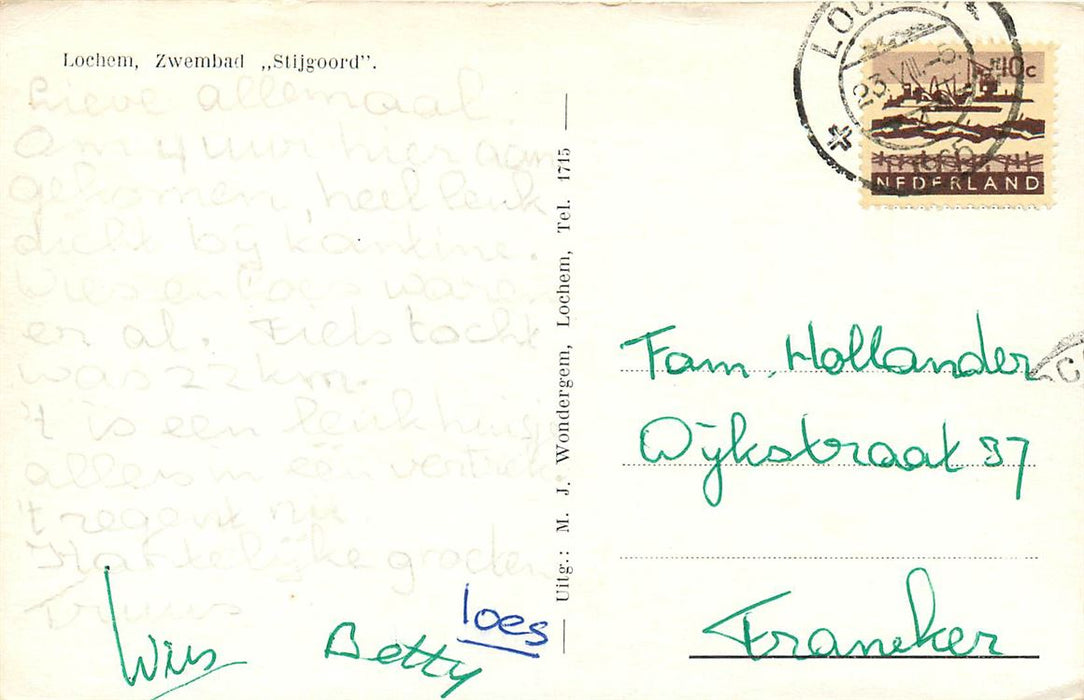 Lochem, Zwembad „Stijgoord”.
Lieve allemaal.
Om 4 uur hier aan
gekomen, heel leuk
dicht bij kantine.
Wies en Loes waren
er al. Fietstocht
was 22 km.
't is een leuk huisje
alles in éé vertrek
't regent nu.
Hartelijke groeten
Truus
Wies
Betty
loes
Uitg.: M. J. Wondergem, Lochem, Tel. 1715
10c
NEDERLAND
23 VII
1965
Fam. Hollander
Wijkstraat 37
Franeker